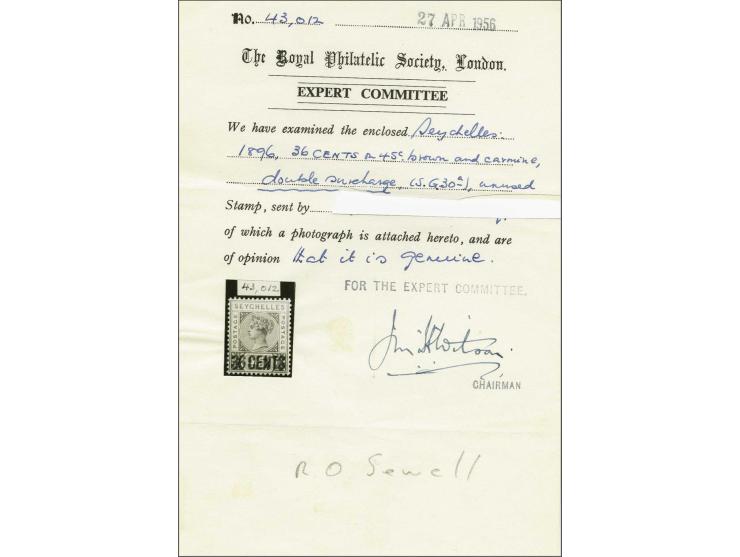 No. 43,012
27 APR 1956
The Royal Philatelic Society, London.
EXPERT COMMITTEE
We have examined the enclosed Seychelles:
1896, 36 CENTS on 45c. brown and carmine,
double surcharge, (S.G.30a), unused
Stamp, sent by
of which a photograph is attached hereto, and are
of opinion that it is genuine.
43,012
SEYCHELLES
POSTAGE POSTAGE
36 CENTS
FOR THE EXPERT COMMITTEE.
CHAIRMAN
R O Sewell